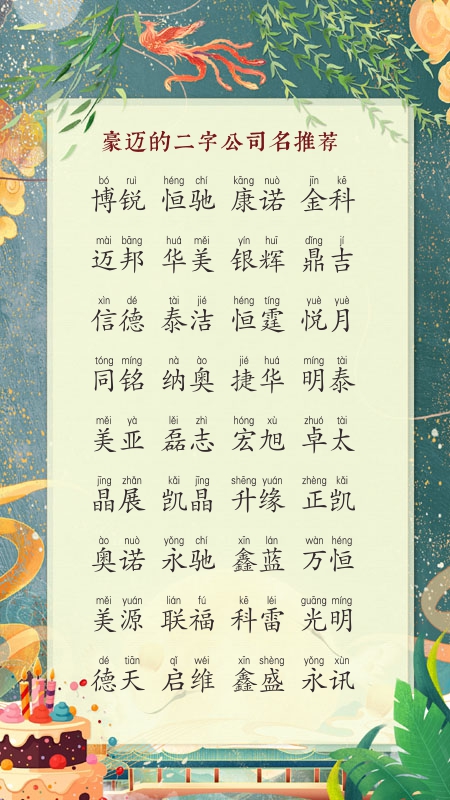 豪迈的二字公司名推荐
bó ruì héng chí kāng nuò jīn kē
博锐 恒驰 康诺 金科
mài bāng huá měi yín huī dǐng jí
迈邦 华美 银辉 鼎吉
xìn dé tài jié héng tíng yuè yuè
信德 泰洁 恒霆 悦月
tóng míng nà ào jié huá míng tài
同铭 纳奥 捷华 明泰
měi yà lěi zhì hóng xù zhuó tài
美亚 磊志 宏旭 卓太
jīng zhǎn kǎi jīng shēng yuán zhèng kǎi
晶展 凯晶 升缘 正凯
ào nuò yǒng chí xīn lán wàn héng
奥诺 永驰 鑫蓝 万恒
měi yuán lián fú kē léi guāng míng
美源 联福 科雷 光明
dé tiān qǐ wéi xīn shèng yǒng xùn
德天 启维 鑫盛 永讯